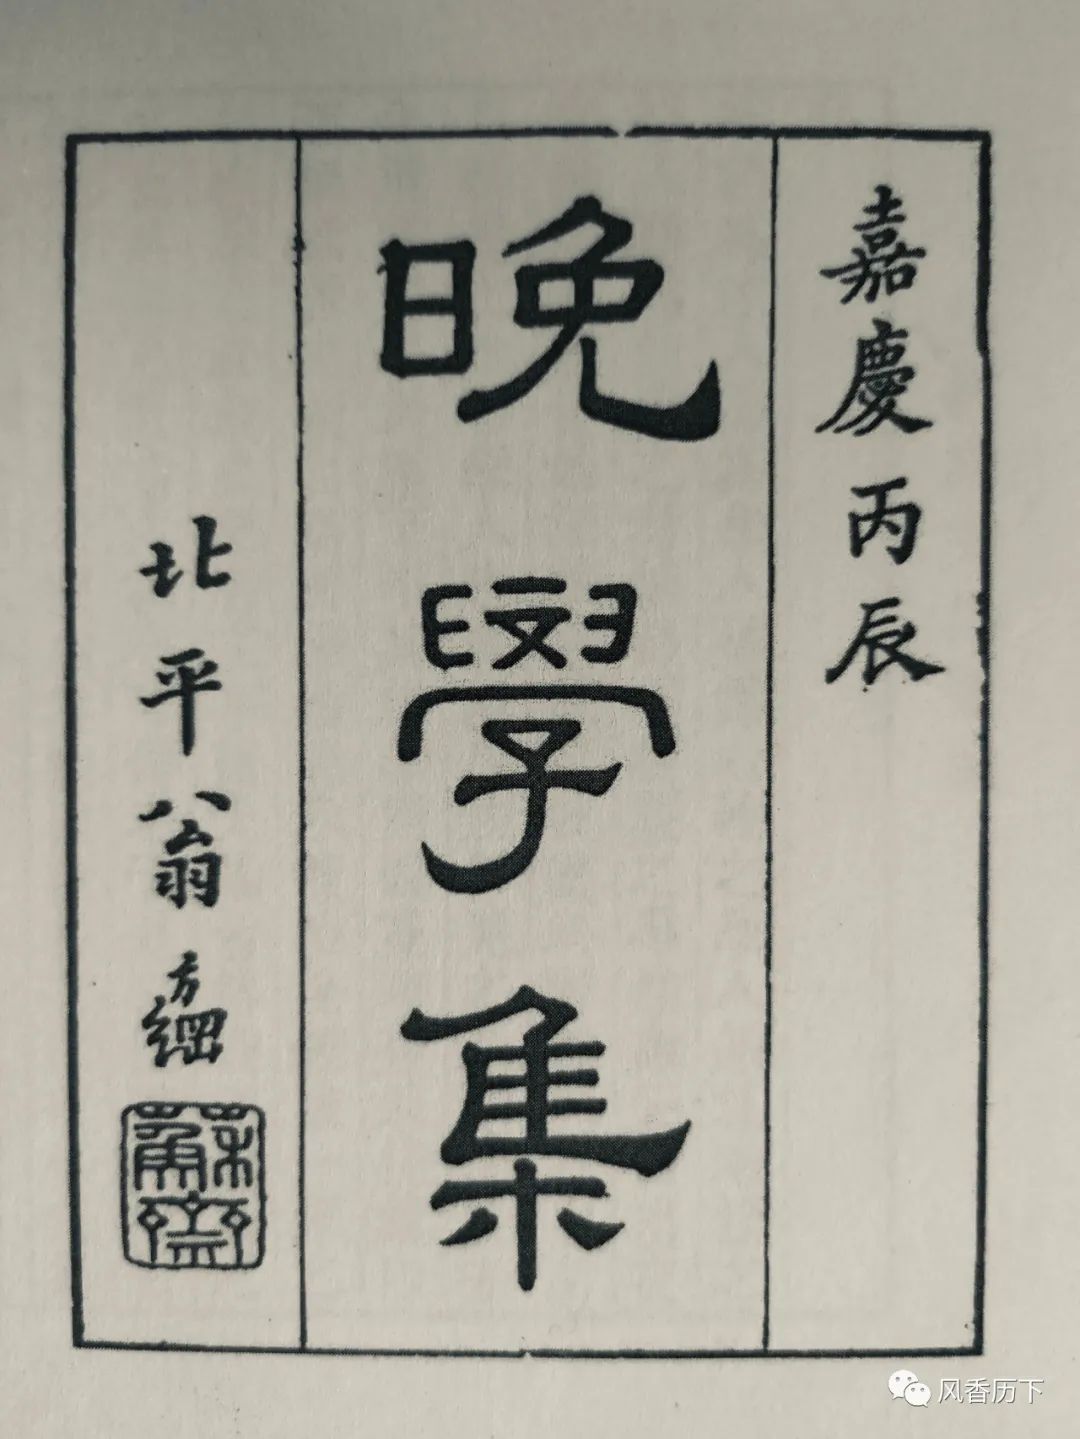 嘉慶丙辰
晚學集
北平翁方綱
蘇齋
风香历下